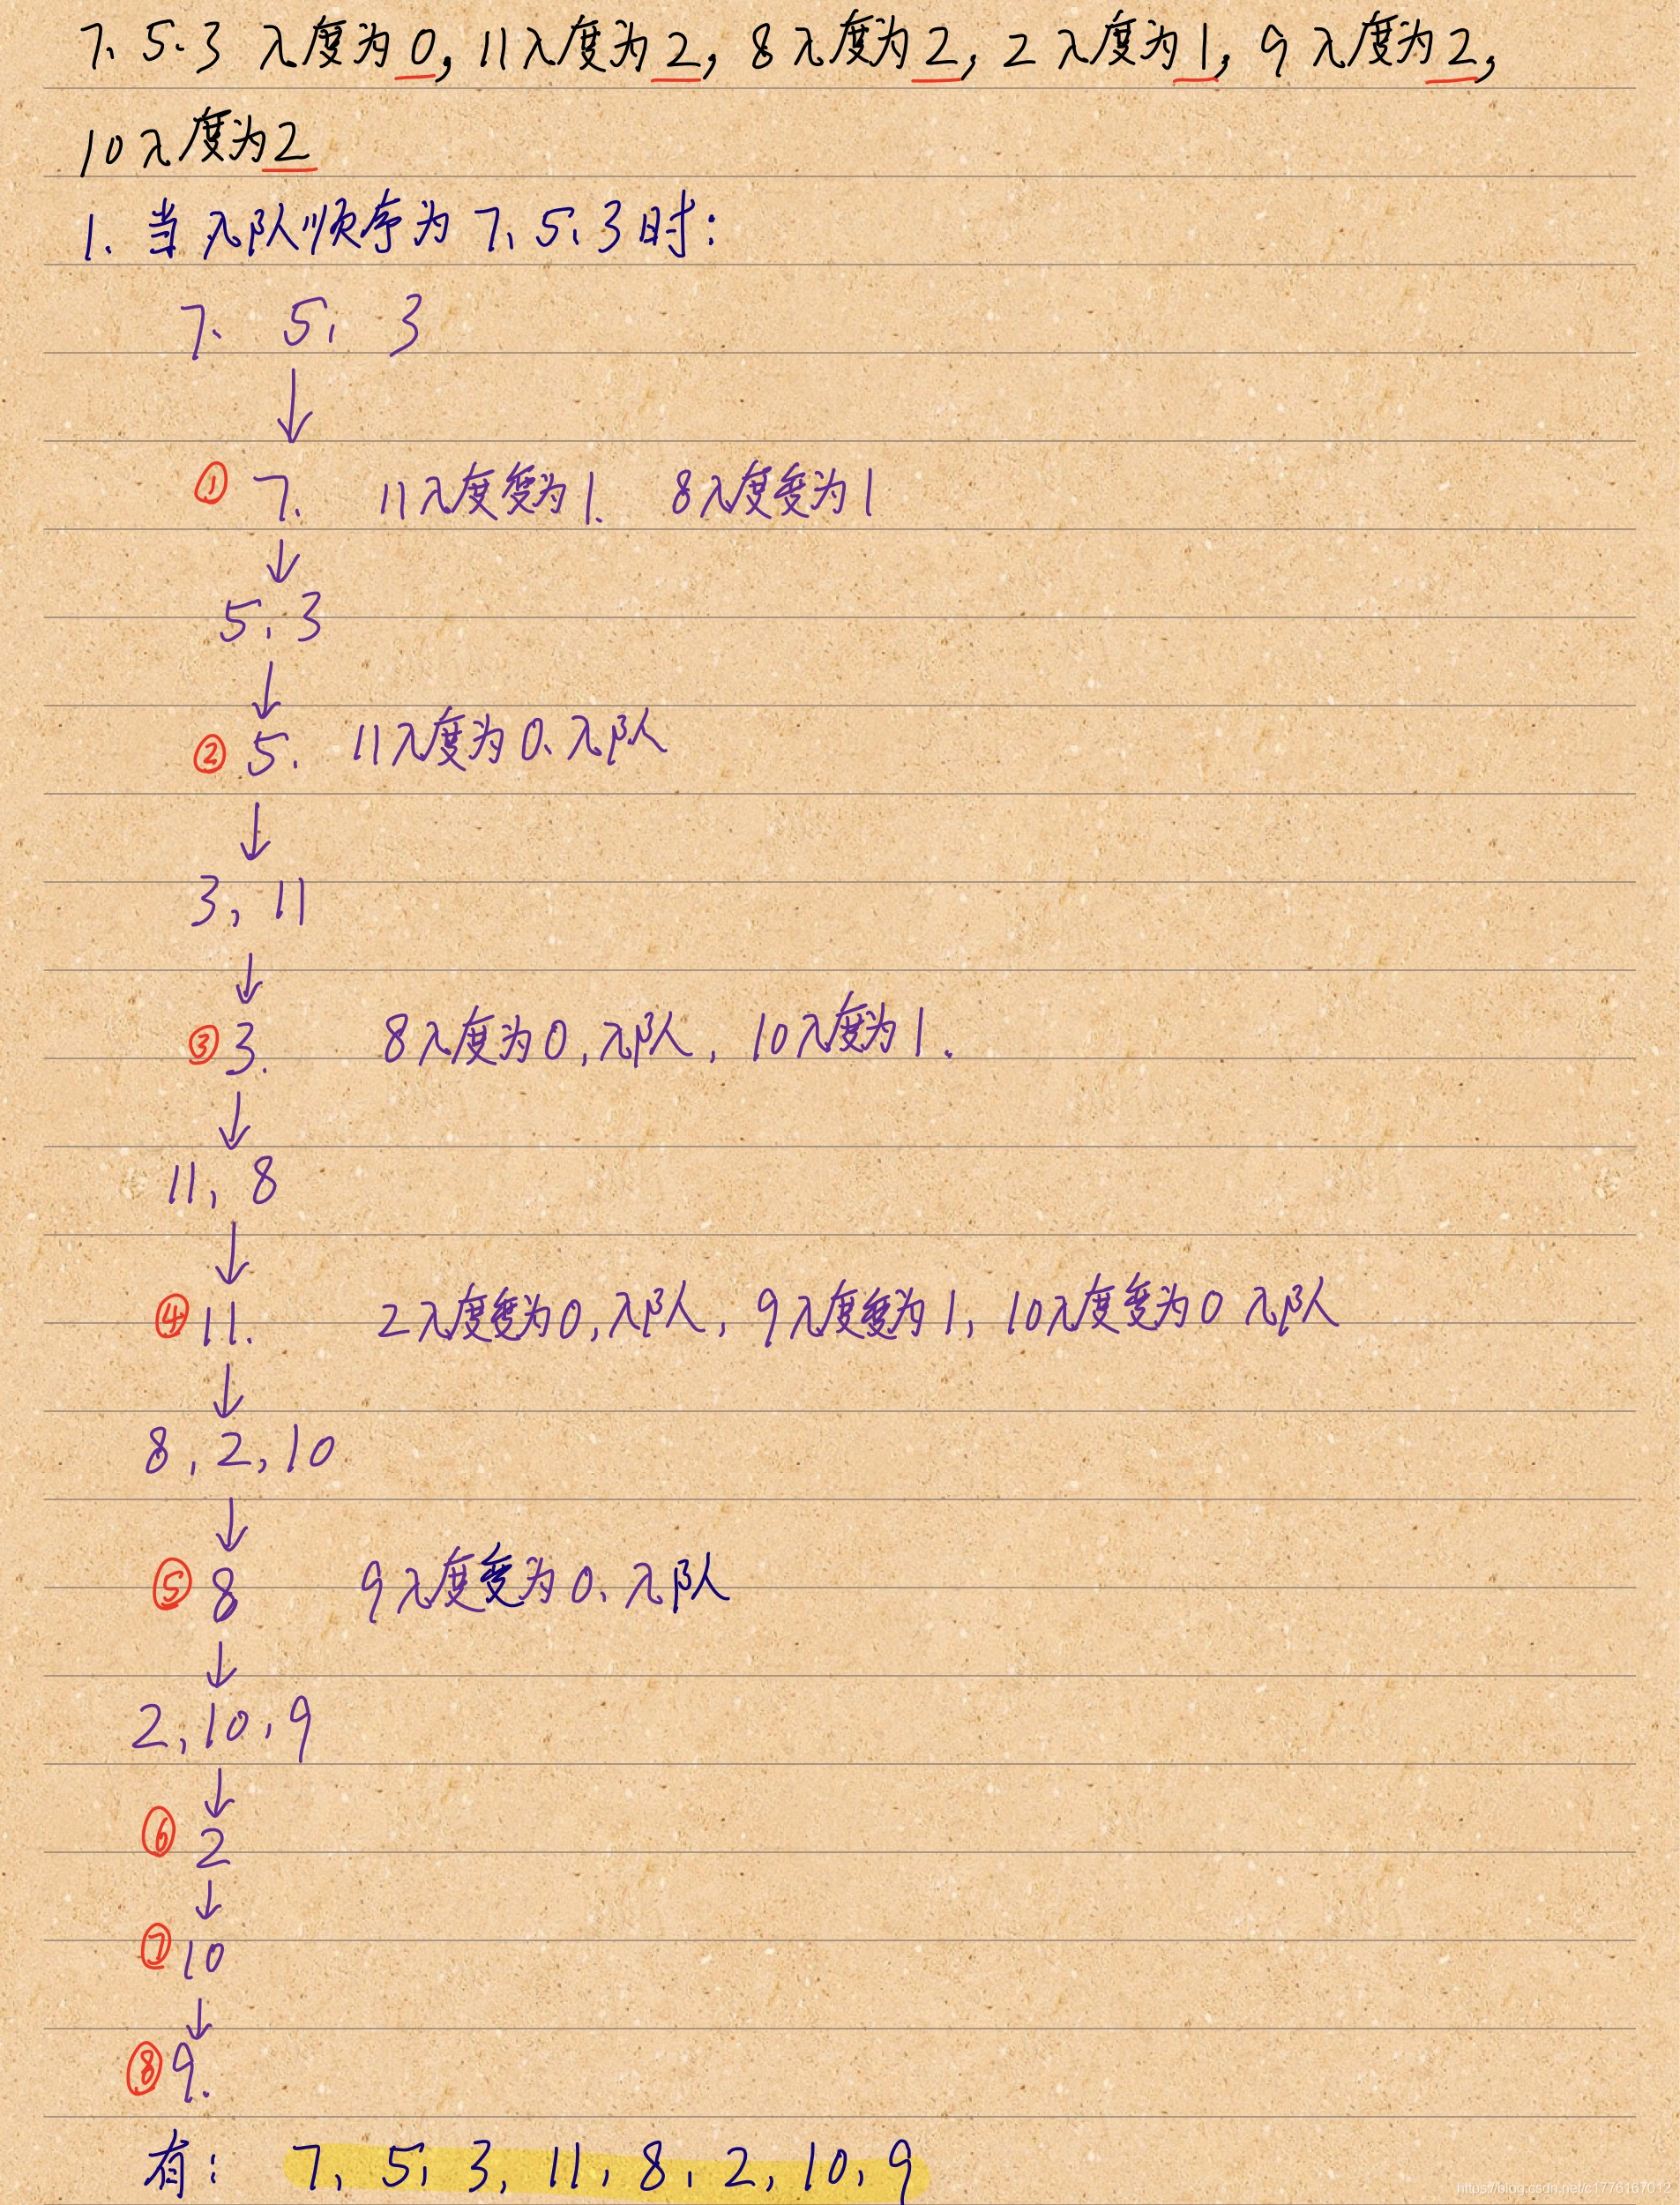 7、5、3 入度为0, 11入度为2, 8入度为2, 2入度为1, 9入度为2,
10入度为2
1. 当入队顺序为7、5、3时:
7、 5、 3
① 7. 11入度变为1. 8入度变为1
5、3
② 5. 11入度为0、入队
3, 11
③ 3. 8入度为0, 入队, 10入度为1.
11, 8
④ 11. 2入度变为0, 入队, 9入度变为1, 10入度变为0 入队
8, 2, 10
⑤ 8 9入度变为0、入队
2, 10, 9
⑥ 2
⑦ 10
⑧ 9.
有: 7, 5, 3, 11, 8, 2, 10, 9